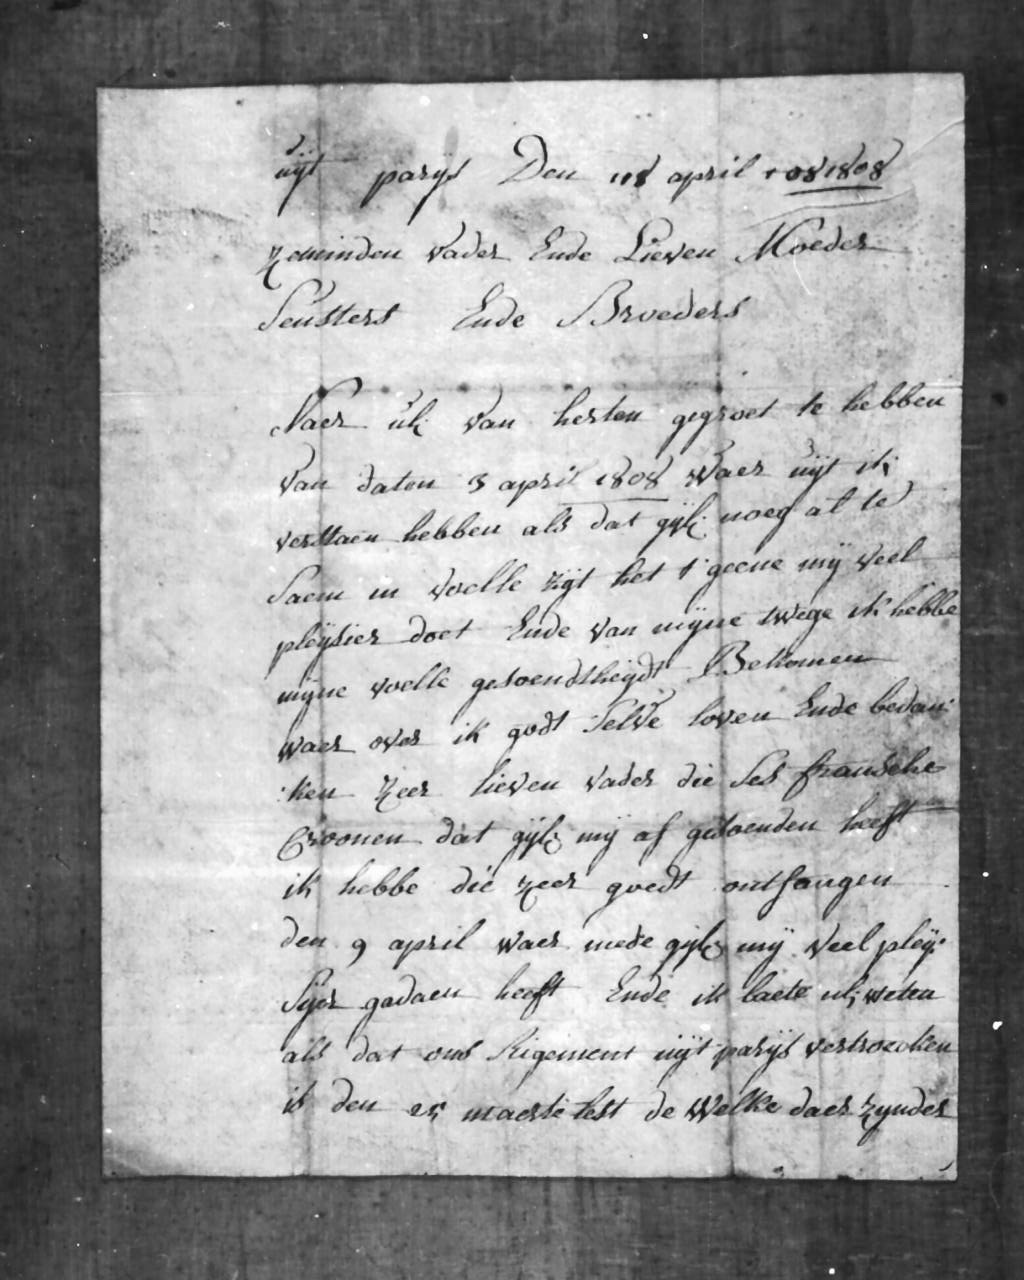 uijt parijs Den 18 april 1808
Zeminden vader Ende Lieven Moeder
Seusters Ende Broeders
Naer ul: van herten gegroet te hebben
van daten 3 april 1808 waer uijt ik
verstaen hebben als dat gijl: noeg al te
Saem in voelle zijt het t geene mij veel
pleijsier doet Ende van mijne twege ik hebbe
mijne voelle gesoendtheijdt Bekomen
waer over ik godt Selve loven Ende bedan:
:ken Zeer lieven vader die Ses fransche
Croonen dat gijl: mij af gesoenden heeft
ik hebbe die zeer goedt ontfangen
den 9 april waer mede gijl: mij veel pleij:
Sijer gedaen heeft Ende ik laete ul: weten
als dat ons Rigement uijt parijs vertrocken
is den 25 maerte lest de welke daer zijnder